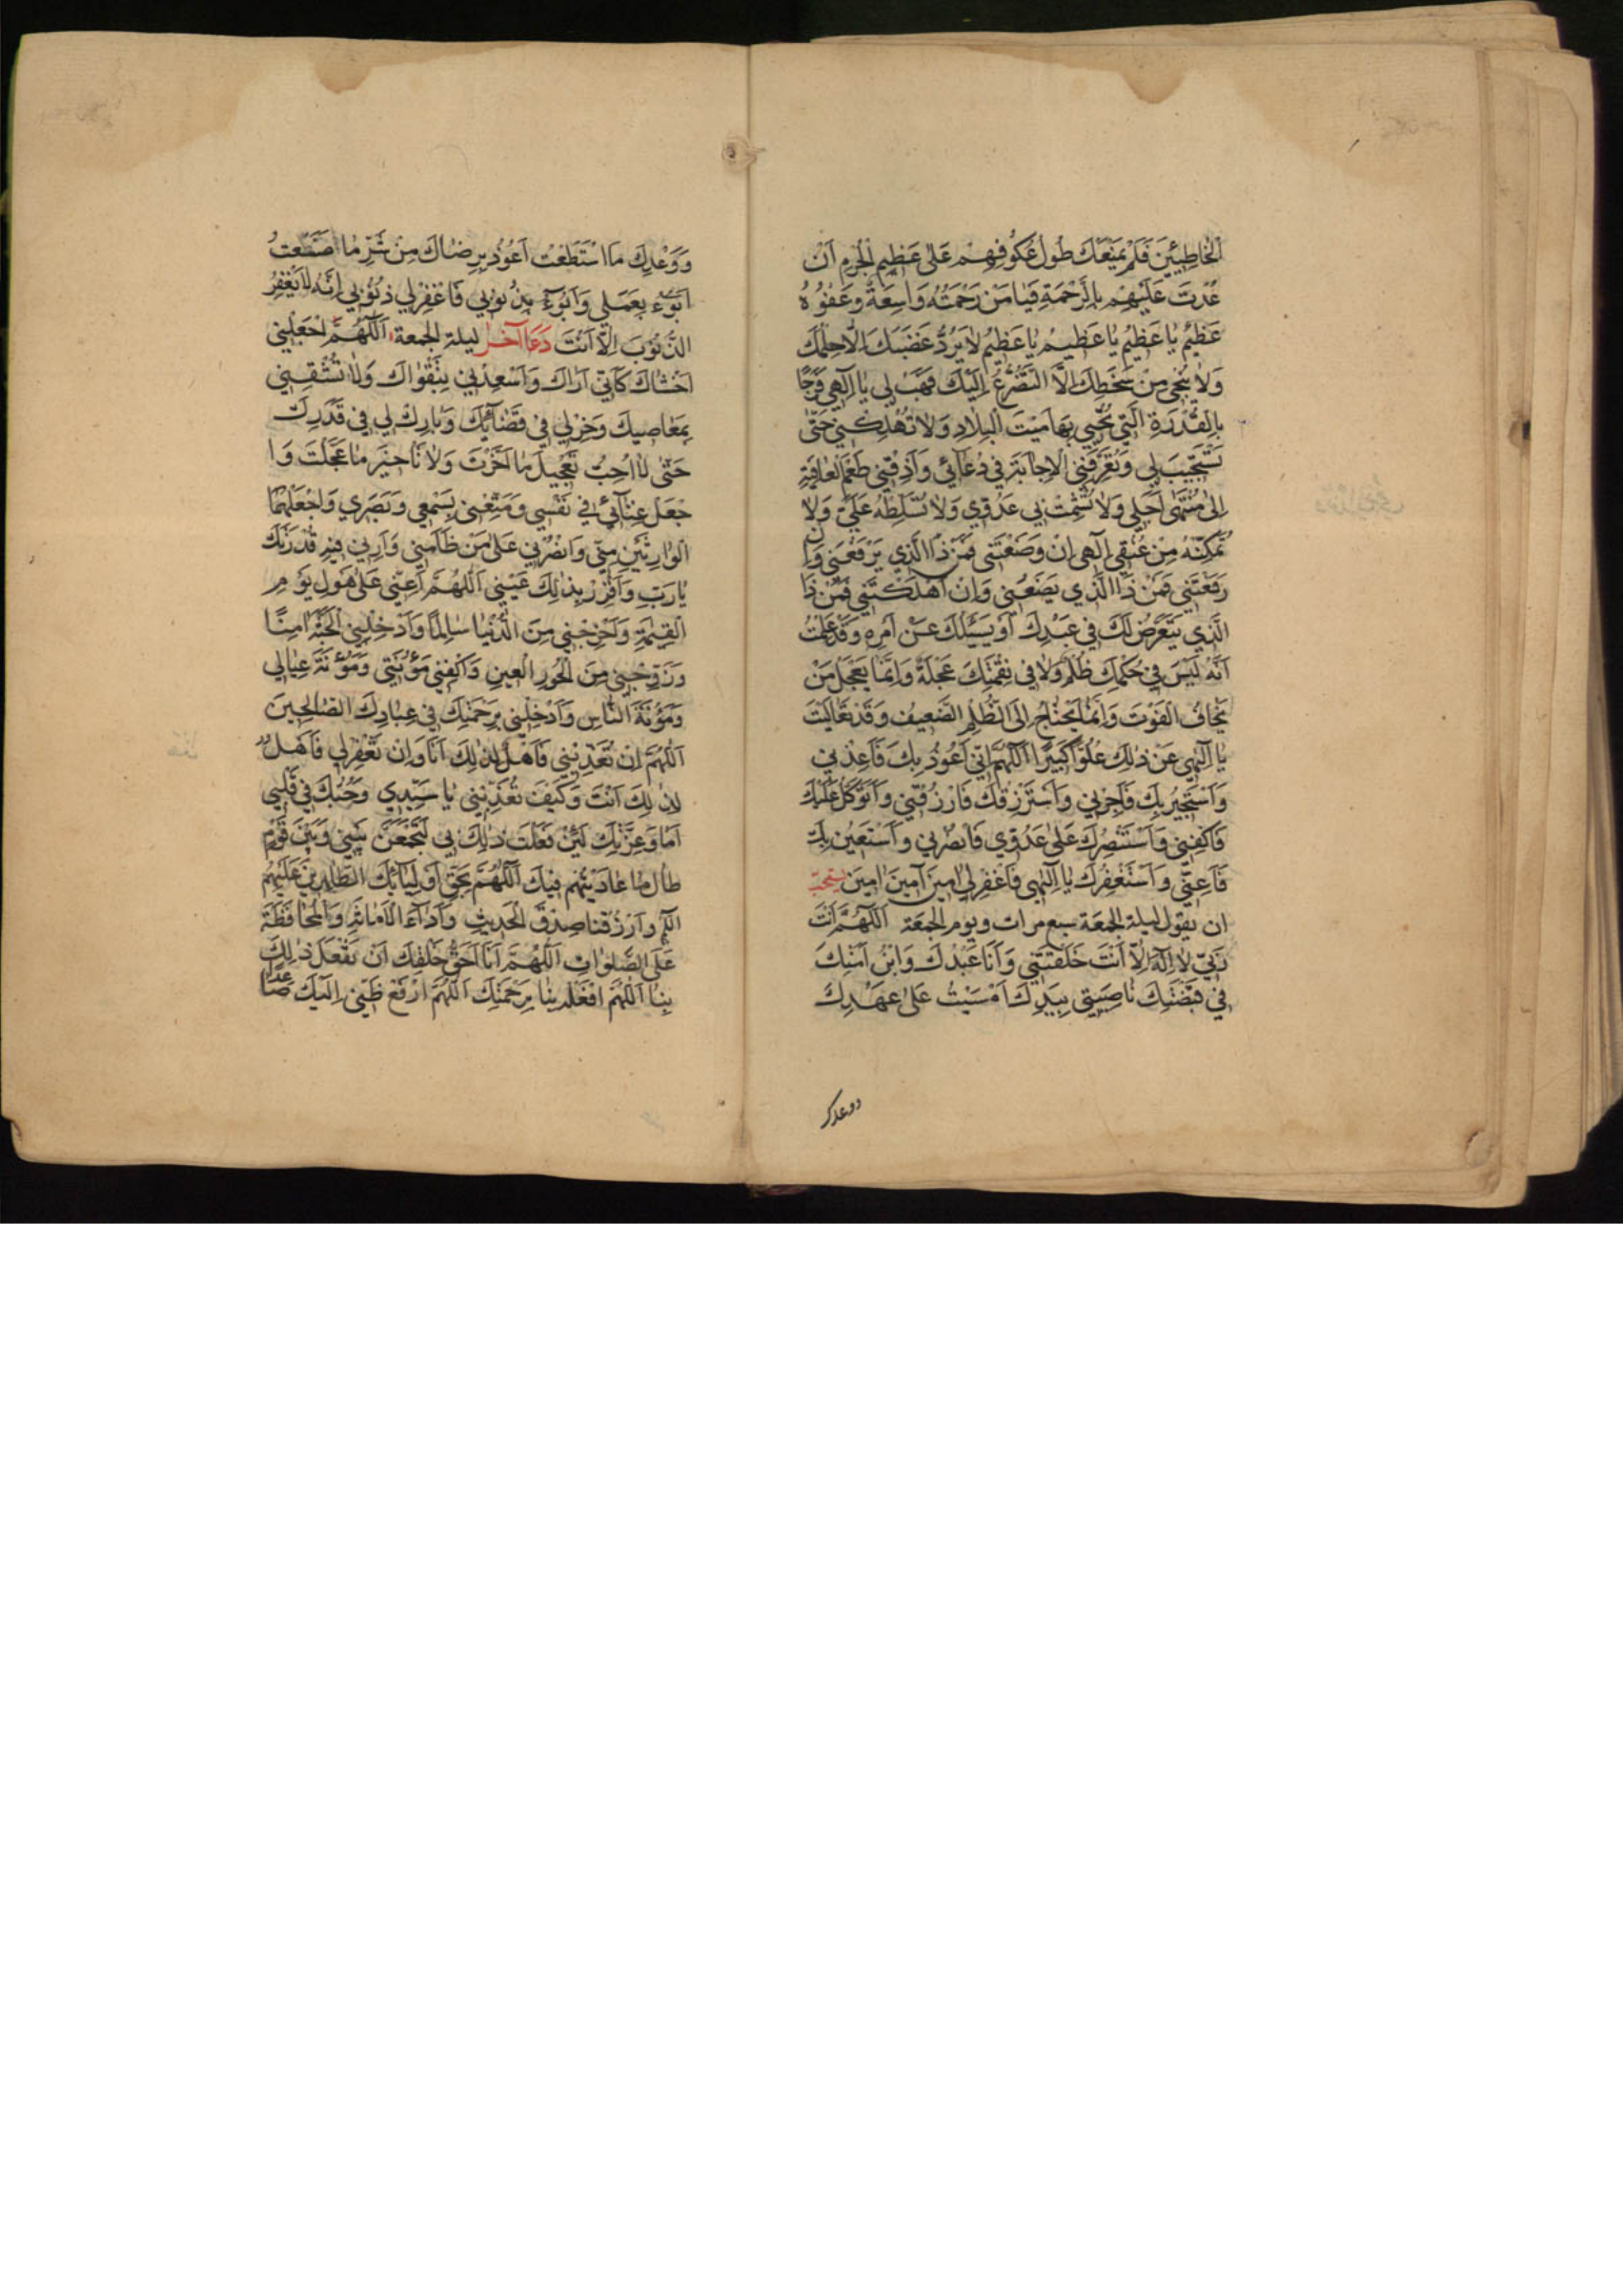 الْخَاطِئِينَ فَلَمْ يَمْنَعْكَ طُولُ عُكُوفِهِمْ عَلَى عَظِيمِ الْجُرْمِ أَنْ
عُدْتَ عَلَيْهِمْ بِالرَّحْمَةِ فَيَا مَنْ رَحْمَتُهُ وَاسِعَةٌ وَعَفْوُهُ
عَظِيمٌ يَا عَظِيمُ يَا عَظِيمُ يَا عَظِيمُ لَا يَرُدُّ غَضَبَكَ إِلَّا حِلْمُكَ
وَلَا يُنْجِي مِنْ سَخَطِكَ إِلَّا التَّضَرُّعُ إِلَيْكَ فَهَبْ لِي يَا إِلٰهِي فَرَجًا
بِالْقُدْرَةِ الَّتِي تُحْيِي بِهَا مَيْتَ الْبِلَادِ وَلَا تُهْلِكْنِي حَتَّى
تَسْتَجِيبَ لِي وَتُعَرِّفَنِي الْإِجَابَةَ فِي دُعَائِي وَأَذِقْنِي طَعْمَ الْعَافِيَةِ
إِلَى مُنْتَهَى أَجَلِي وَلَا تُشْمِتْ بِي عَدُوِّي وَلَا تُسَلِّطْهُ عَلَيَّ وَلَا
تُمَكِّنْهُ مِنْ عُنُقِي إِلٰهِي إِنْ وَضَعْتَنِي فَمَنْ ذَا الَّذِي يَرْفَعُنِي وَإِنْ
رَفَعْتَنِي فَمَنْ ذَا الَّذِي يَضَعُنِي وَإِنْ أَهْلَكْتَنِي فَمَنْ ذَا
الَّذِي يَتَعَرَّضُ لَكَ فِي عَبْدِكَ أَوْ يَسْئَلُكَ عَنْ أَمْرِهِ وَقَدْ عَلِمْتُ
أَنَّهُ لَيْسَ فِي حُكْمِكَ ظُلْمٌ وَلَا فِي نِقْمَتِكَ عَجَلَةٌ وَإِنَّمَا يَعْجَلُ مَنْ
يَخَافُ الْفَوْتَ وَإِنَّمَا يَحْتَاجُ إِلَى الظُّلْمِ الضَّعِيفُ وَقَدْ تَعَالَيْتَ
يَا إِلٰهِي عَنْ ذٰلِكَ عُلُوًّا كَبِيرًا اَللّٰهُمَّ إِنِّي أَعُوذُ بِكَ فَأَعِذْنِي
وَأَسْتَجِيرُ بِكَ فَأَجِرْنِي وَأَسْتَرْزِقُكَ فَارْزُقْنِي وَأَتَوَكَّلُ عَلَيْكَ
فَاكْفِنِي وَأَسْتَنْصِرُكَ عَلَى عَدُوِّي فَانْصُرْنِي وَأَسْتَعِينُ بِكَ
فَأَعِنِّي وَأَسْتَغْفِرُكَ يَا إِلٰهِي فَاغْفِرْ لِي آمِينَ آمِينَ آمِينَ يستحب
ان يقول ليلة الجمعة سبع مرات ويوم الجمعة اَللّٰهُمَّ أَنْتَ
رَبِّي لَا إِلٰهَ إِلَّا أَنْتَ خَلَقْتَنِي وَأَنَا عَبْدُكَ وَابْنُ أَمَتِكَ
فِي قَبْضَتِكَ نَاصِيَتِي بِيَدِكَ أَمْسَيْتُ عَلَى عَهْدِكَ
ووعدك
وَوَعْدِكَ مَا اسْتَطَعْتُ أَعُوذُ بِرِضَاكَ مِنْ شَرِّ مَا صَنَعْتُ
أَبُوءُ بِعَمَلِي وَأَبُوءُ بِذُنُوبِي فَاغْفِرْ لِي ذُنُوبِي إِنَّهُ لَا يَغْفِرُ
الذُّنُوبَ إِلَّا أَنْتَ دعا آخر ليلة الجمعة اَللّٰهُمَّ اجْعَلْنِي
أَخْشَاكَ كَأَنِّي أَرَاكَ وَأَسْعِدْنِي بِتَقْوَاكَ وَلَا تُشْقِنِي
بِمَعَاصِيكَ وَخِرْ لِي فِي قَضَائِكَ وَبَارِكْ لِي فِي قَدَرِكَ
حَتَّى لَا أُحِبَّ تَعْجِيلَ مَا أَخَّرْتَ وَلَا تَأْخِيرَ مَا عَجَّلْتَ وَا
جْعَلْ غِنَائِي فِي نَفْسِي وَمَتِّعْنِي بِسَمْعِي وَبَصَرِي وَاجْعَلْهُمَا
الْوَارِثَيْنِ مِنِّي وَانْصُرْنِي عَلَى مَنْ ظَلَمَنِي وَأَرِنِي فِيهِ قُدْرَتَكَ
يَا رَبِّ وَأَقْرِرْ بِذٰلِكَ عَيْنِي اَللّٰهُمَّ أَعِنِّي عَلَى هَوْلِ يَوْمِ
الْقِيٰمَةِ وَأَخْرِجْنِي مِنَ الدُّنْيَا سَالِمًا وَأَدْخِلْنِي الْجَنَّةَ آمِنًا
وَزَوِّجْنِي مِنَ الْحُورِ الْعِينِ وَاكْفِنِي مَؤُنَتِي وَمَؤُنَةَ عِيَالِي
وَمَؤُنَةَ النَّاسِ وَأَدْخِلْنِي بِرَحْمَتِكَ فِي عِبَادِكَ الصَّالِحِينَ
اَللّٰهُمَّ إِنْ تُعَذِّبْنِي فَأَهْلٌ لِذٰلِكَ أَنَا وَإِنْ تَغْفِرْ لِي فَأَهْلٌ
لِذٰلِكَ أَنْتَ وَكَيْفَ تُعَذِّبُنِي يَا سَيِّدِي وَحُبُّكَ فِي قَلْبِي
أَمَا وَعِزَّتِكَ لَئِنْ فَعَلْتَ ذٰلِكَ بِي لَتَجْمَعَنَّ بَيْنِي وَبَيْنَ قَوْمٍ
طَالَ مَا عَادَيْتُهُمْ فِيكَ اَللّٰهُمَّ بِحَقِّ أَوْلِيَائِكَ الطَّاهِرِينَ عَلَيْهِمُ
وَارْزُقْنَا صِدْقَ الْحَدِيثِ وَأَدَاءَ الْأَمَانَةِ وَالْمُحَافَظَةَ
عَلَى الصَّلَوَاتِ اَللّٰهُمَّ أَنَا أَحَقُّ خَلْقِكَ أَنْ تَفْعَلَ ذٰلِكَ
بِنَا اَللّٰهُمَّ افْعَلْهُ بِنَا بِرَحْمَتِكَ اَللّٰهُمَّ ارْفَعْ ظَنِّي إِلَيْكَ صَاعِدًا